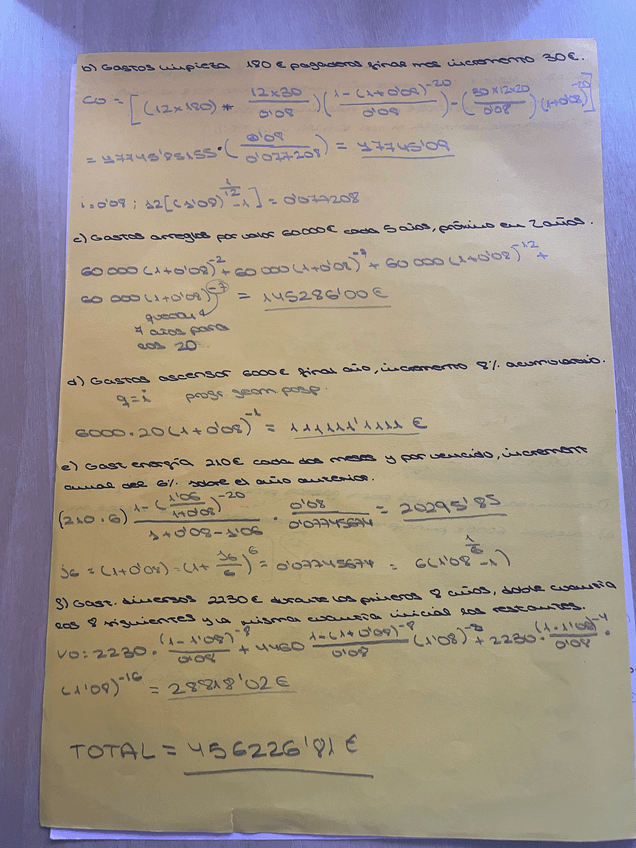 b) Gastos limpieza 180 € pagaderos final mes incremento 30 €.
C0 = [(12x180) + 12x30/0'08)(1-(1+0'08)^-20/0'08) - (30x12x20/0'08)·(1+0'08)^-20]
= 37745'85155·(0'08/0'077208) = 37745'09
i=0'08 ; 12[(1'08)^1/12 -1] = 0'077208
c) Gastos arreglos por valor 60000€ cada 5 años, próximo en 2 años.
60 000 (1+0'08)^-2 + 60 000 (1+0'08)^-7 + 60 000 (1+0'08)^-12 +
60 000 (1+0'08)^-7 = 145286'00 €
4 años para
los 20
d) Gastos ascensor 6000 € final año, incremento 8% acumulativo.
q=i progr geom posp.
6000·20(1+0'08)^-1 = 111111'1111 €
e) Gast energía 210€ cada dos meses y por vencido, increment
anual del 6% sobre el año anterior.
(210·6) 1-(1'06/1+0'08)^-20 / 1+0'08-1'06 · 0'08/0'07745674 = 20295'85
j6 = (1+0'08) = (1+ j6/6)^6 = 0'07745674 = 6(1'08^1/6 -1)
g) Gast. diversos 2230€ durante los primeros 8 años, doble cuantía
los 8 siguientes y la misma cuantía inicial los restantes.
V0: 2230·(1-1'08)^-8/0'08 + 4460 1-(1+0'08)^-8/0'08 (1'08)^-8 + 2230·(1-1'08)^-4/0'08 ·
(1'08)^-16 = 28818'02 €
TOTAL = 456226'81 €